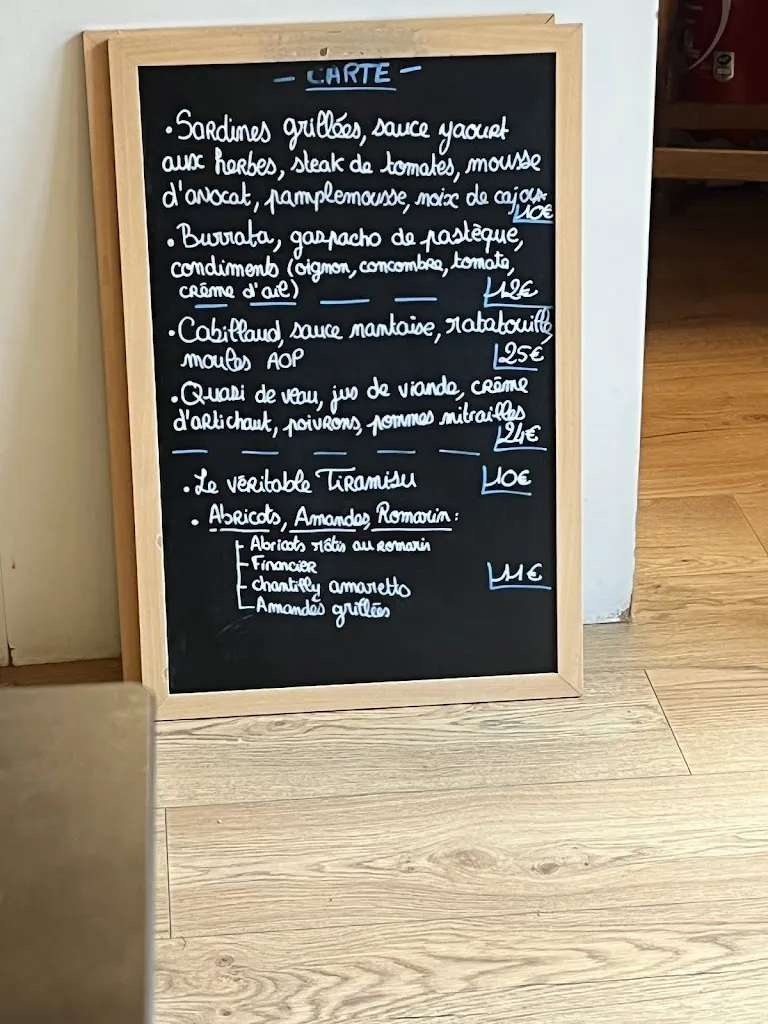 - CARTE -
• Sardines grillées, sauce yaourt
aux herbes, steak de tomates, mousse
d'avocat, pamplemousse, noix de cajou
10€
• Burrata, gaspacho de pastèque,
condiments (oignon, concombre, tomate,
crème d'ail)
12€
• Cabillaud, sauce nantaise, ratatouille,
moules AOP
25€
• Quasi de veau, jus de viande, crème
d'artichaut, poivrons, pommes mitrailles
24€
• Le véritable Tiramisu 10€
• Abricots, Amandes, Romarin :
Abricots rôtis au romarin
Financier
chantilly amaretto
Amandes grillées
11€